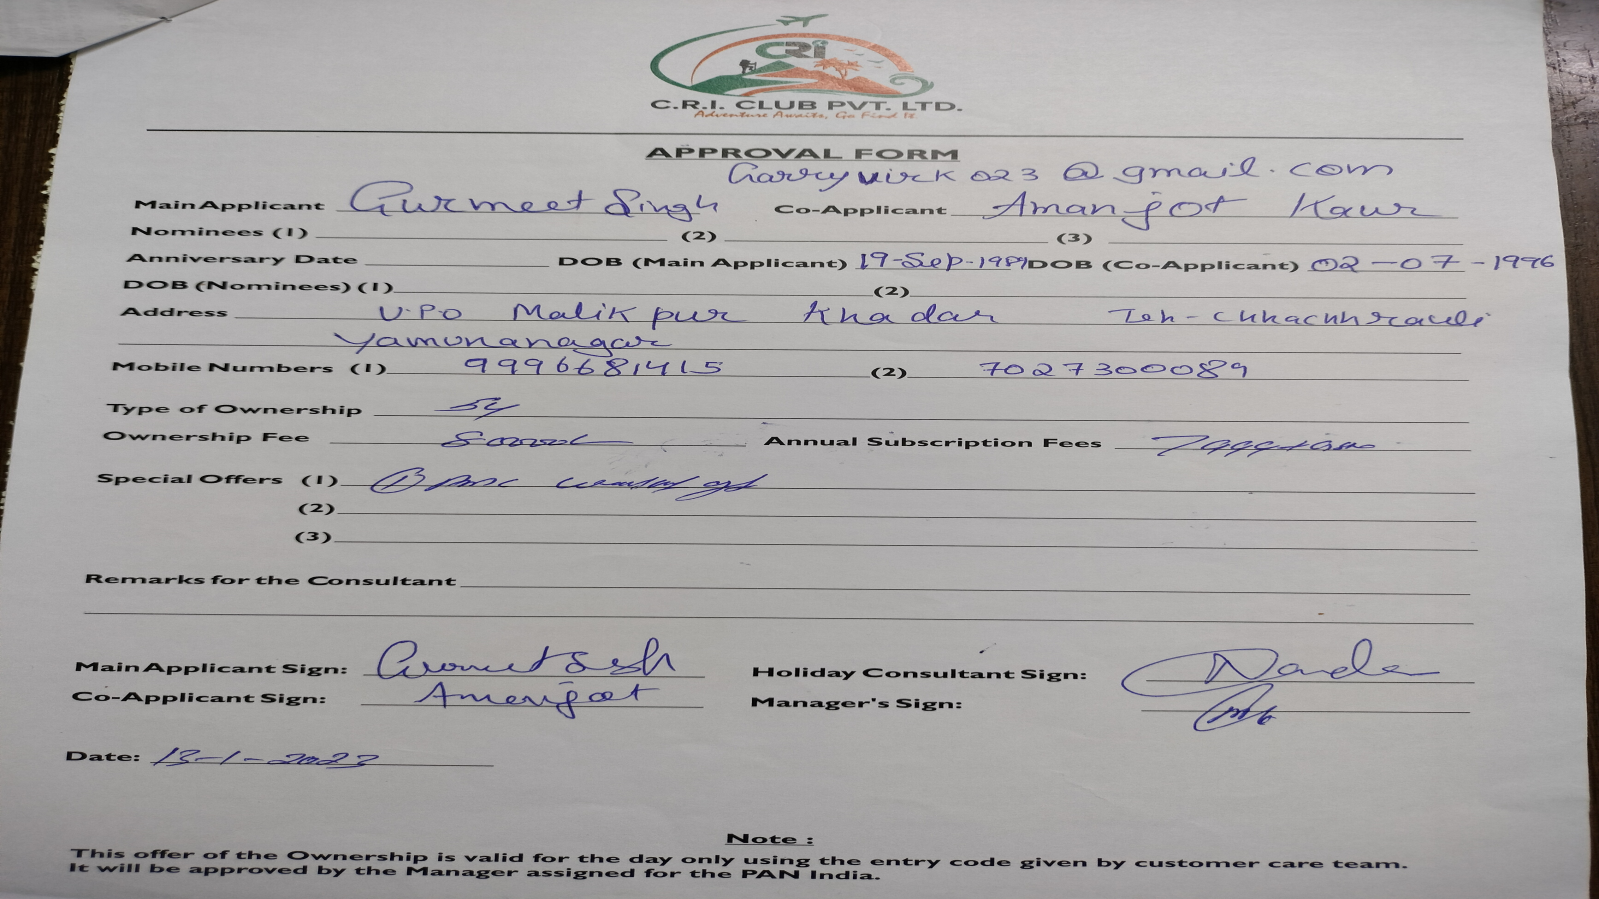 CRI
C.R.I. CLUB PVT. LTD.
Adventure Awaits, Go Find It.
APPROVAL FORM
Garryvirk023@gmail.com
Main Applicant Gurmeet Singh Co-Applicant Amanjot Kaur
Nominees (1) (2) (3)
Anniversary Date DOB (Main Applicant) 19-Sep-1989 DOB (Co-Applicant) 02-07-1996
DOB (Nominees) (1) (2)
Address V.P.O Malikpur Khadar Teh-Chhachhrauli
Yamunanagar
Mobile Numbers (1) 9996681415 (2) 7027300089
Type of Ownership 5y
Ownership Fee Annual Subscription Fees
Special Offers (1) ①
(2)
(3)
Remarks for the Consultant
Main Applicant Sign: Holiday Consultant Sign:
Co-Applicant Sign: Amanjot Manager's Sign:
Date: 13-1-2023
Note :
This offer of the Ownership is valid for the day only using the entry code given by customer care team.
It will be approved by the Manager assigned for the PAN India.